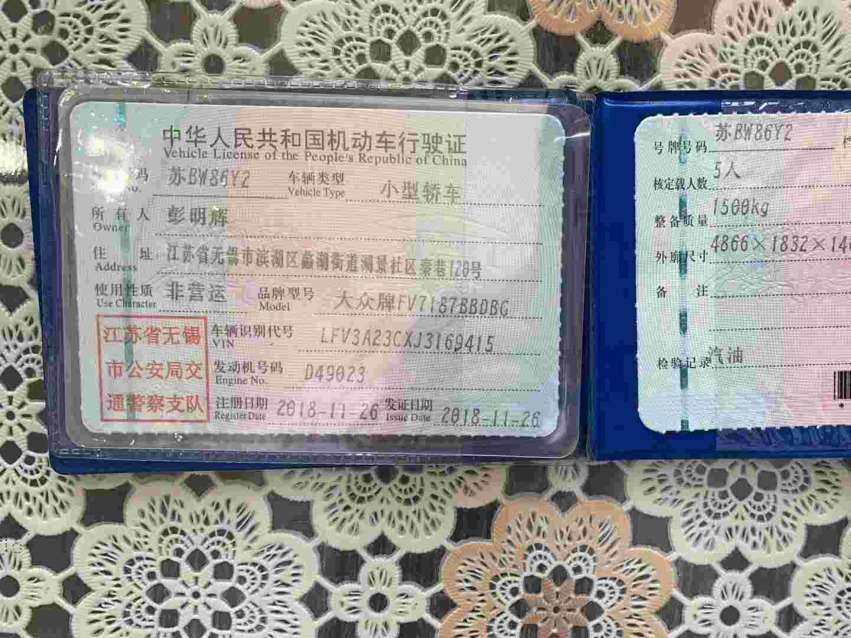 中华人民共和国机动车行驶证
Vehicle License of the People's Republic of China
码 苏BW86Y2 车辆类型 小型轿车
No. Vehicle Type
所有人 彭明辉
Owner
住 址 江苏省无锡市滨湖区蠡湖街道湖景社区秦巷120号
Address
使用性质 非营运 品牌型号 大众牌FV7187BBDBG
Use Character Model
江苏省无锡
市公安局交
通警察支队
车辆识别代号 LFV3A23CXJ3169415
VIN
发动机号码 D49023
Engine No.
注册日期 2018-11-26 发证日期 2018-11-26
Register Date Issue Date
号牌号码 苏BW86Y2
核定载人数 5人
整备质量 1500kg
外廓尺寸 4866×1832×14
备 注
检验记录 汽油